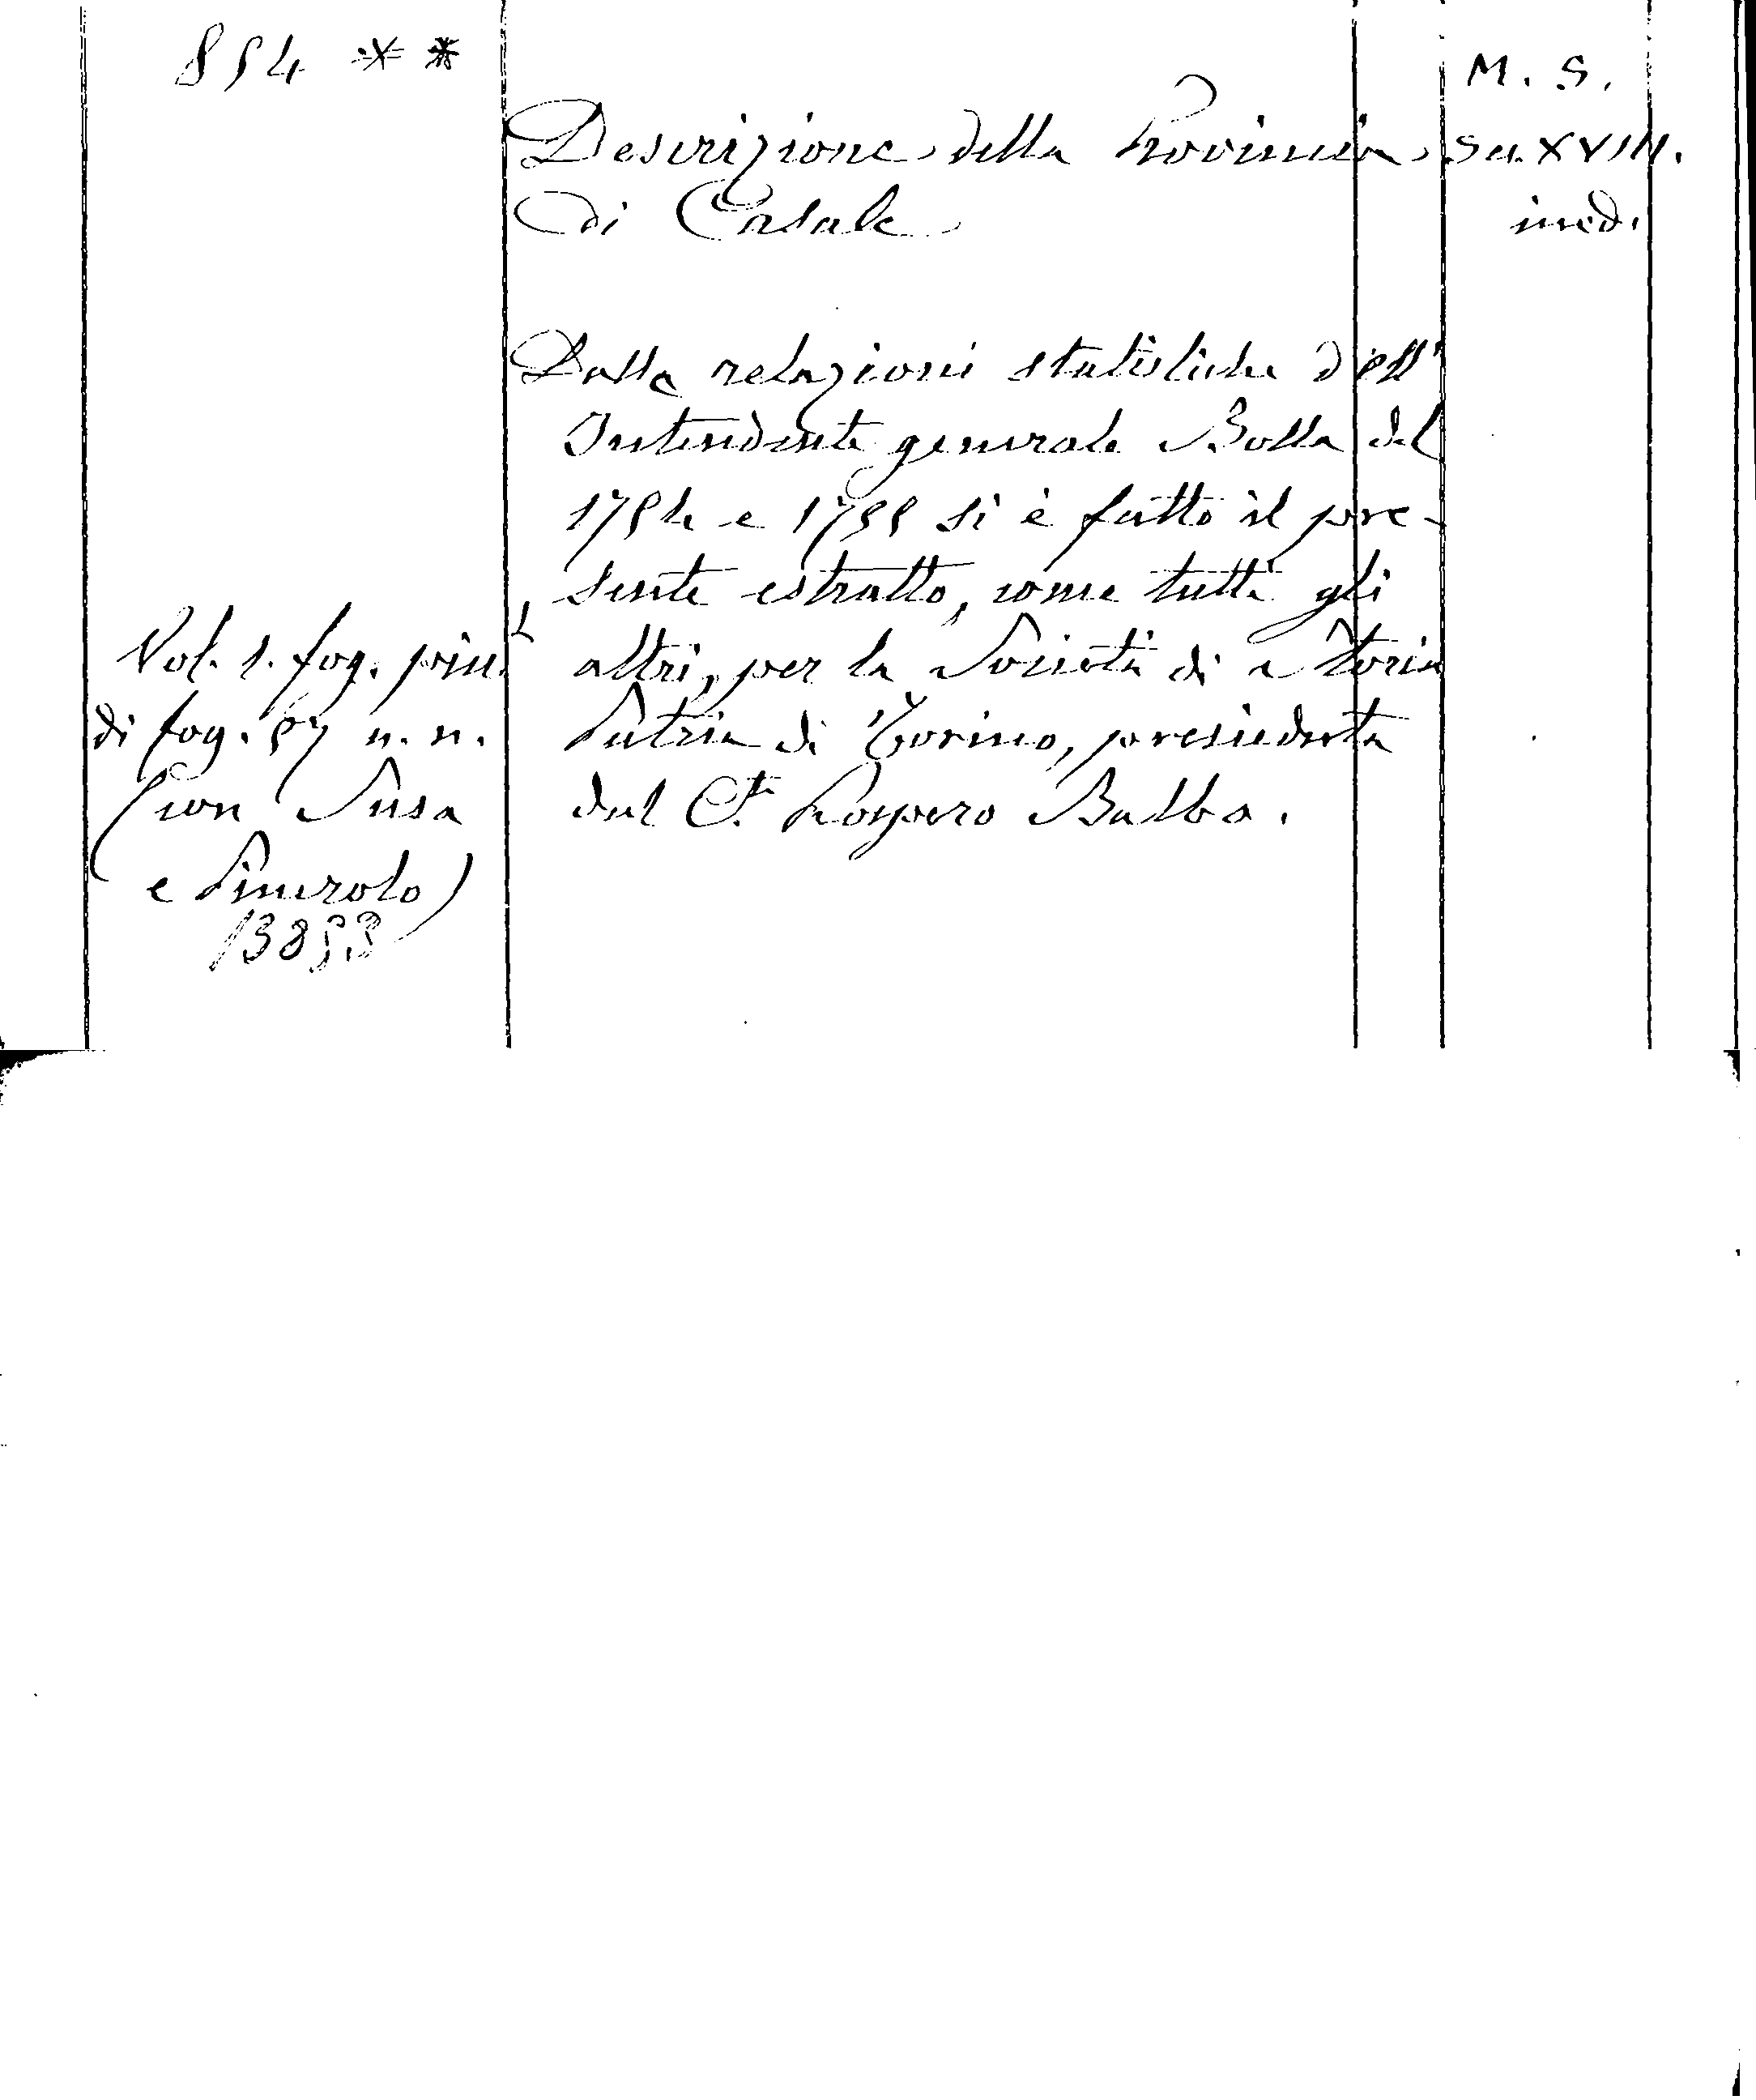 854 **
M. S.
Descrizione della Provincia
Sec. XVIII.
di Casale
ined.
Dalle relazioni statistiche dell'
Intendente generale Bolla del
1754 e 1755 si è fatto il pre-
sente estratto, come tutti gli
altri, per la Società di Storia
Patria di Torino, presieduta
dal C.te Prospero Balbo.
Vol. 1. fog. picc.
di fog. 57 n. n.
(con Susa
e Pinerolo)
13853